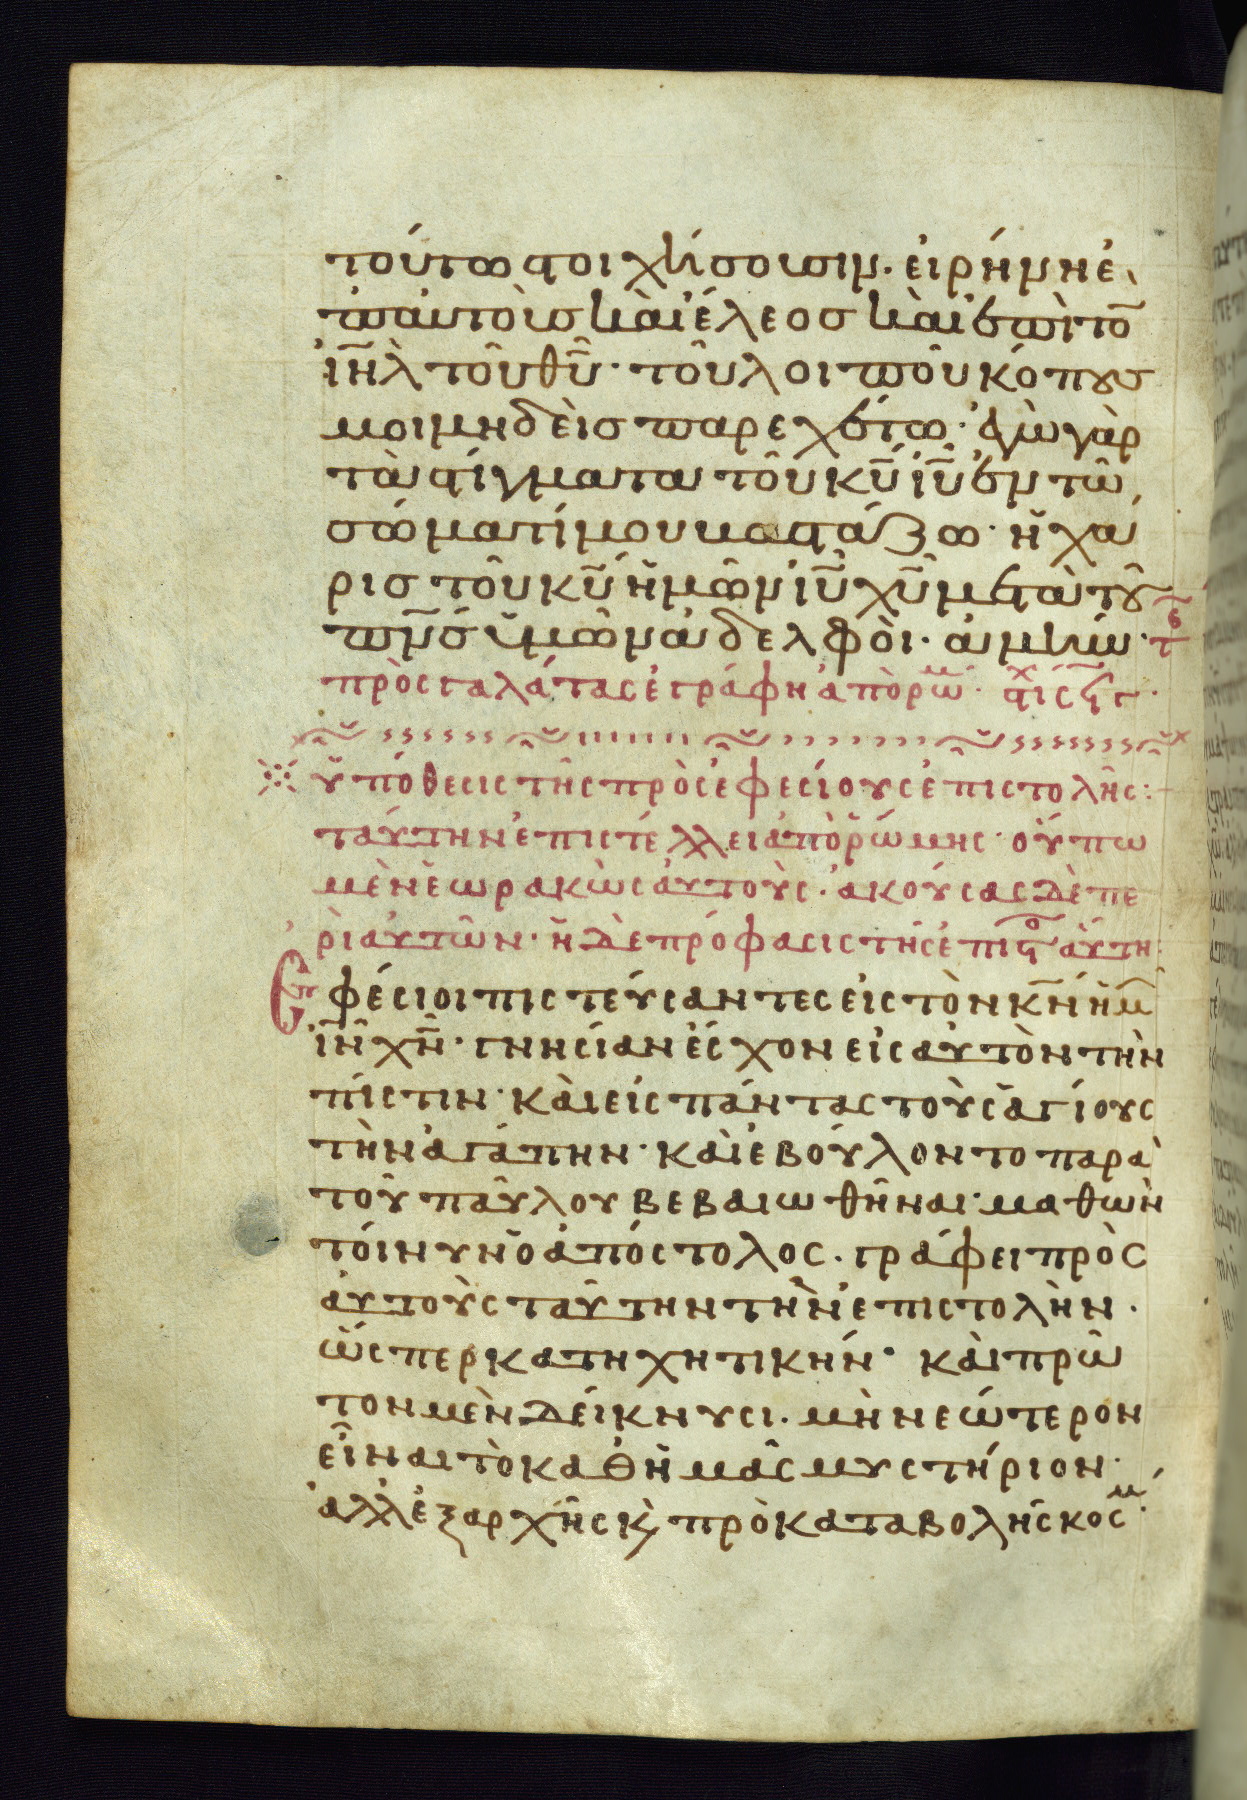 τούτω στοιχήσουσιν· εἰρήνη ἐ
π αὐτοὺς καὶ ἔλεος καὶ ἐπὶ τὸ
ιη̅λ τοῦ θυ̅· τοῦ λοιποῦ κόπους
μοι μηδεὶς παρεχέτω· ἐγὼ γὰρ
τὰ στίγματα τοῦ κυ̅ ιυ̅ ἐν τῶ
σώματί μου βαστάζω· ἡ χά
ρις τοῦ κυ̅ ἡμῶν ιυ̅ χυ̅ μετὰ τοῦ
πνς̅ ὑμῶν ἀδελφοὶ· ἀμήν·
πρὸς γαλάτας ἐγράφη ἀπὸ ρω^μ· στι^χ ς̅ϟγ·
ὑπόθεσις τῆς πρὸς ἐφεσίους ἐπιστολῆς:
ταύτην ἐπιστέλλει ἀπὸ ῥώμης· οὔπω
μὲν ἑωρακὼς αὐτοὺς· ἀκούσας δὲ πε
ρὶ αὐτῶν· ἡ δὲ πρόφασις τῆς ἐπιστ^ο αὕτη·
Ἐφέσιοι πιστεύσαντες εἰς τὸν κν̅ ἡμ̅
ιν̅ χν̅· γνησίαν ἔσχον εἰς αὐτὸν τὴν
πίστιν· καὶ εἰς πάντας τοὺς ἁγίους
τὴν ἀγάπην· καὶ ἐβούλοντο παρὰ
τοῦ παύλου βεβαιωθῆναι· μαθὼν
τοίνυν ὁ ἀπόστολος· γράφει πρὸς
αὐτοὺς ταύτην τὴν ἐπιστολὴν·
ὥσπερ κατηχητικήν· καὶ πρῶ
τον μὲν δείκνυσι· μὴ νεώτερον
εἶναι τὸ καθ ἡμᾶς μυστήριον·
ἀλλ ἐξ ἀρχῆς κ̀ πρὸ καταβολῆς κόσ^μ·